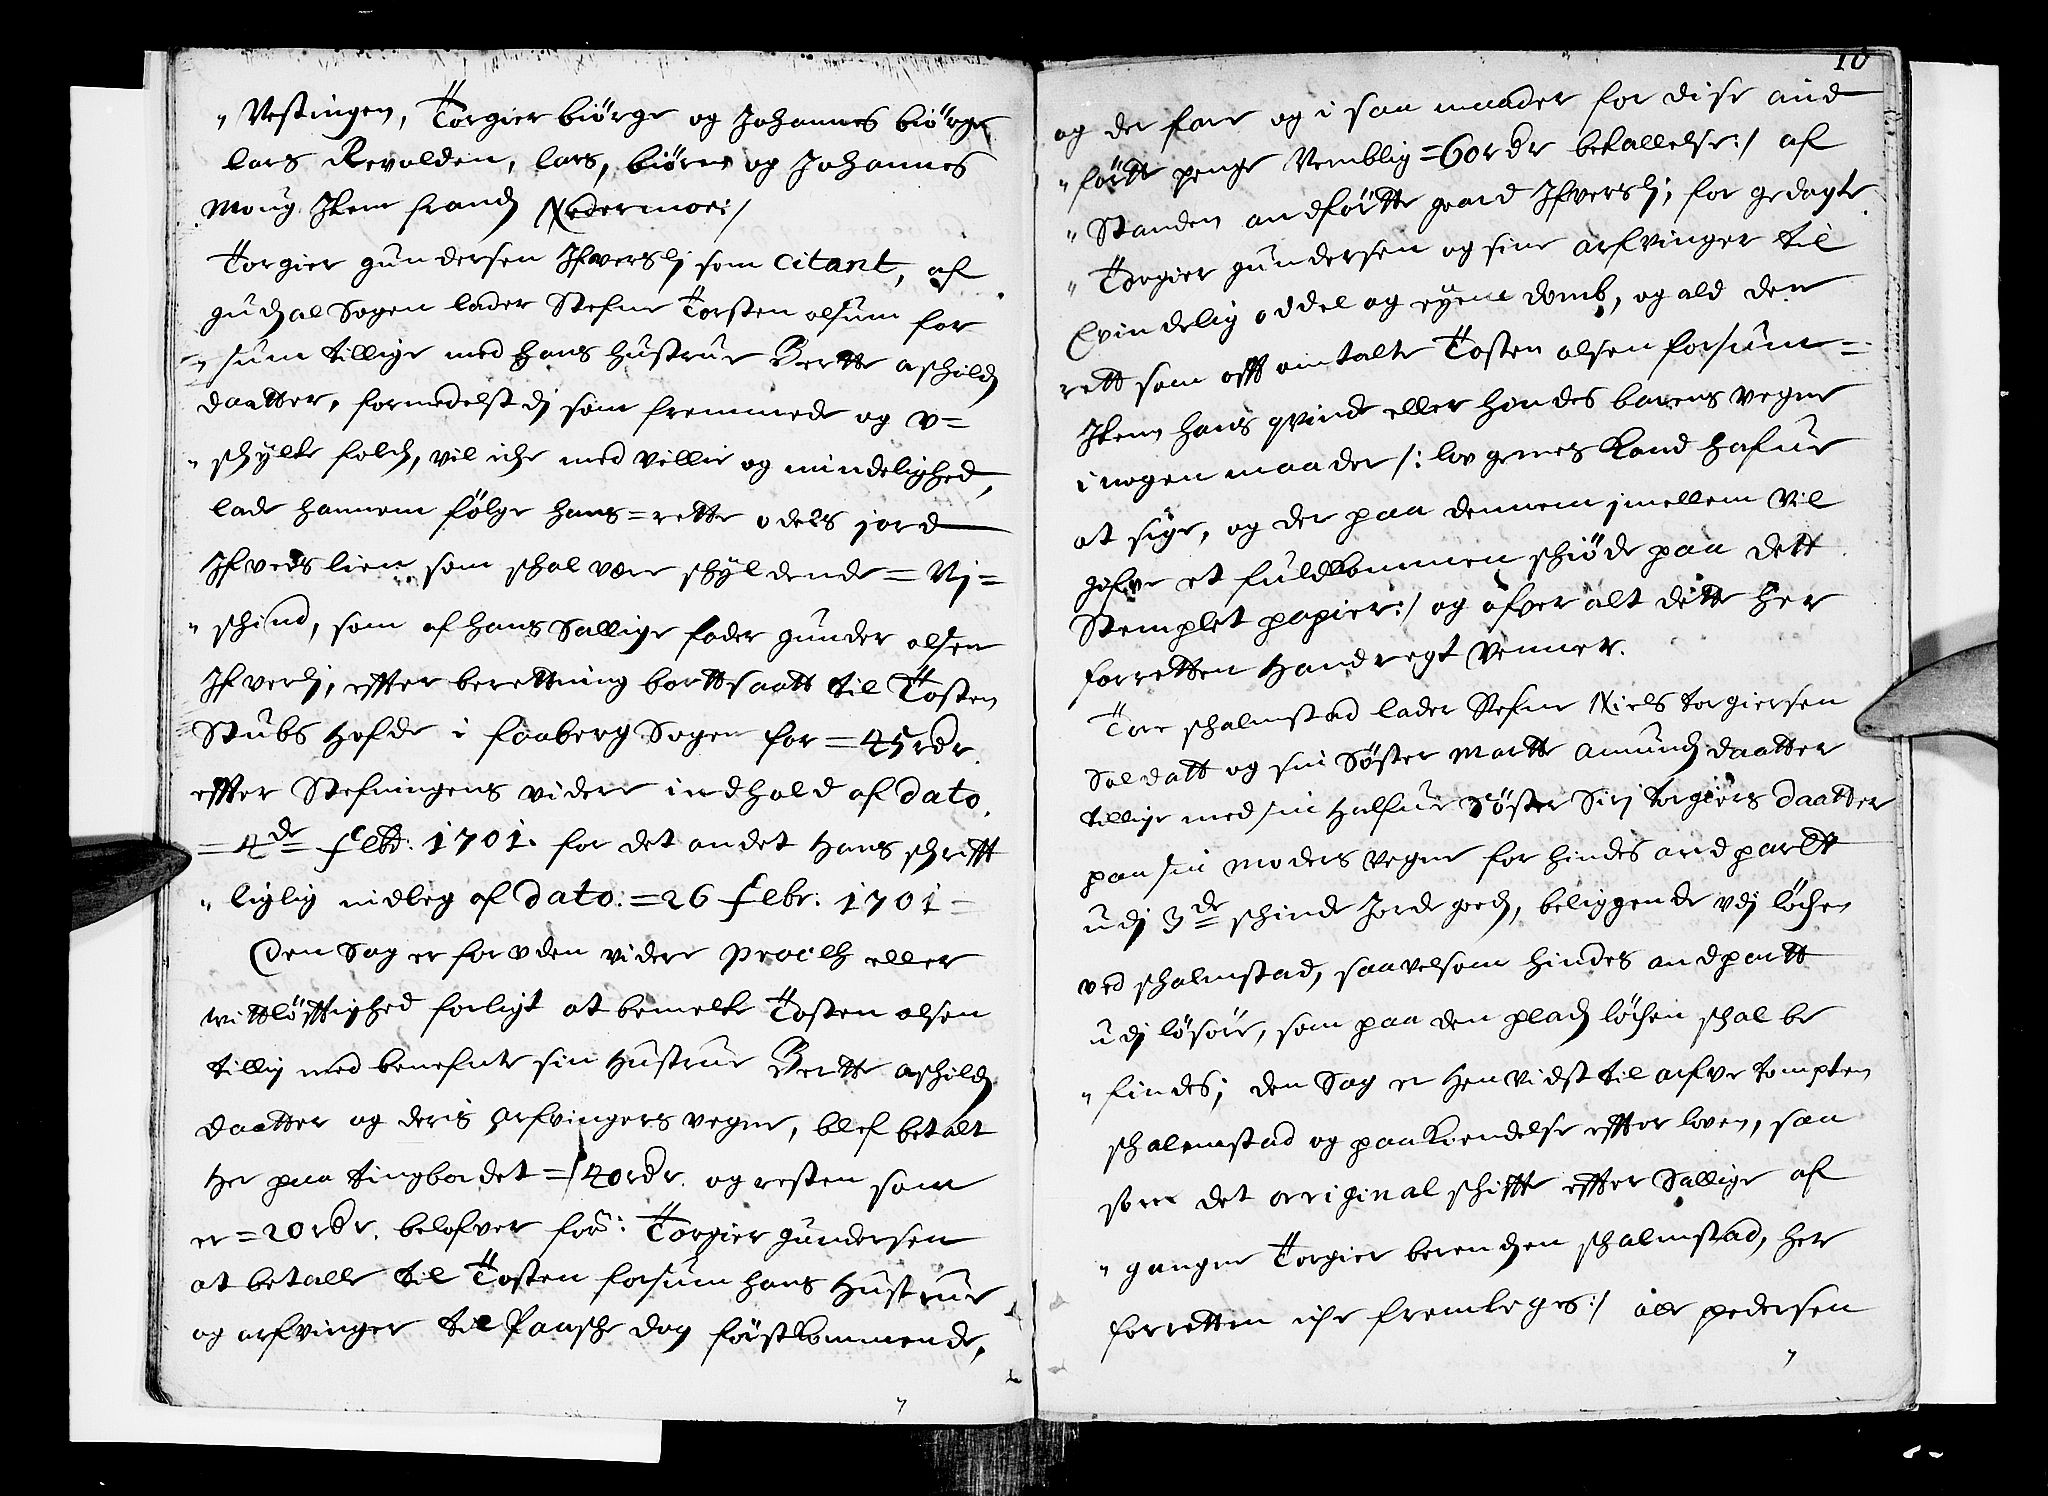 " Vestingen, Torgier biörge og Johannes biörge
lars Revolden, lars, biörn og Johannes
Moug Item frandz Nedermoe:/
Torgier gundersen Ifversli som Citant, af
gudzal Sogen lader Stefne Torsten olsum for
= sum tillige med hans hustrue Berthe aschildz
daatter, formedelst dj som fremmede og v=
" schylte folch, vil iche med villie og mindelighed,
lade hannem fölge hans = rette odels jord
Ifverslien som schal vere schyldende = Vj =
" schind, som af hans Sallige fader gunder olsen
Ifverslj, effter beretning borttsaatt til Tosten
Stubs Hofde i faaberg Sogen for = 45 rdr.
effter Stefningens videre indhold af dato.
= 4de Febr: 1701. for det andet Hans schrifft
" liglig indleg af dato: = 26 Febr: 1701 =
Den Sag er foruden videre process eller
wittlöfftighed forligt at bemelte Tosten olsen
tillig med benefnte sin Hustrue Berthe aschildz
daatter og deris arfvingers vegne, blef betalt
Her paa tingbordet = 40 rdr. og resten som
er = 20 rdr. belofver for: Torgier gundersen
at betalle til Tosten forsum hans Hustrue
og arfvinger til Paasche dag förstkommende,
10
og der fore og i saa maader for disse and
" förtte penge Nemblig = 60 rdr betallelse:/ af
" Standen andförtte gaard Ifversli; for gedagte
" Torgier gundersen og sine arfvinger til
Evindelig oddel og eyendomb, og ald den
rett som offt omtalte Tosten olsen forsum =
Item hans qvinde eller hindes barns vegne
i nogen maader /: lovgemes Kand hafue
at sige, og der paa dennem jmellem vil
gifve et fuldkommen schiöde paa dett
Stemplet papier:/ og ofver alt dette her
forretten Handregt venner.
Tore schalmstad lader Stefne Niels torgiersen
Soldatt og sin Söster Marte amundz daatter
tillige med sin Halfue Söster Sirj torgiers daatter
paa sin moders vegne for hindes andpartt
udj 3de schinde Jordegodz, beliggende vdj löchen
ved schalmstad, saavelsom hindes andpartt
udj lösöre, som paa den pladz löchen schal be
" findes; den Sag er Henvidst til arfve tompten
schalmstad og paakiendelse effter loven, saa
som det orriginal schiffte effter Sallige af
" gangne Torgier berendzen schalmstad, her
forretten iche fremleges:/ ole pedersen